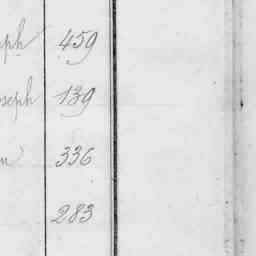 ph 459
seph 139
n 336
283